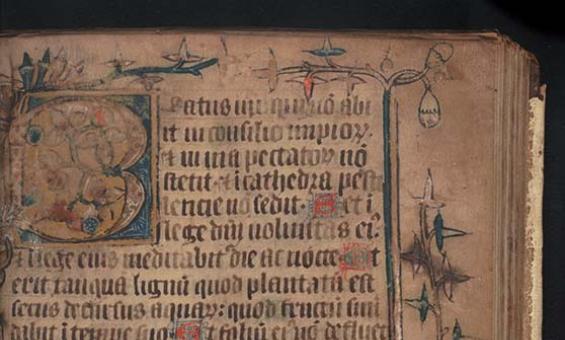 Beatus uir qui nō abi
it in consilio impioꝝ.
et in uia peccatoꝝ nō
stetit. et i cathedra pesti
lencie nō sedit. Set i
lege dn̄i uoluntas eiꝰ.
et i lege eius meditabit᷑ die ac nocte. Et
erit tanquā lignū quod plantatū est
secus decursus aquaꝝ: quod fructū suū
dabit i tempe suo. Et foliū eiꝰ nō defluet